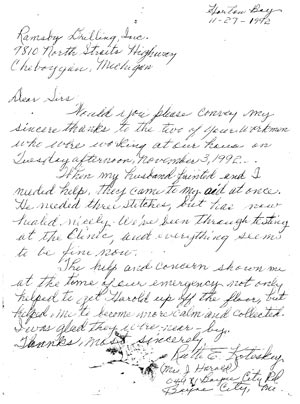 Horton Bay
11-27-1992
Ramsby Drilling, Inc.
9810 North Straits Highway
Cheboygan, Michigan
Dear Sirs,
Would you please convey my
sincere thanks to the two of your workmen
who were working at our house on
Tuesday afternoon, November 3, 1992.
When my husband fainted and I
needed help, they came to my aid at once.
He needed three stitches, but has now
healed nicely. We've been through testing
at the Clinic, and everything seems
to be fine now.
The help and concern shown me
at the time of our emergency not only
helped to get Harold up off the floor, but
helped me to become more calm and collected.
I was glad they were near-by.
Thanks, most sincerely,
Ruth E.
(Mrs. Harold)
Boyne City Rd.
Boyne City, Mi.